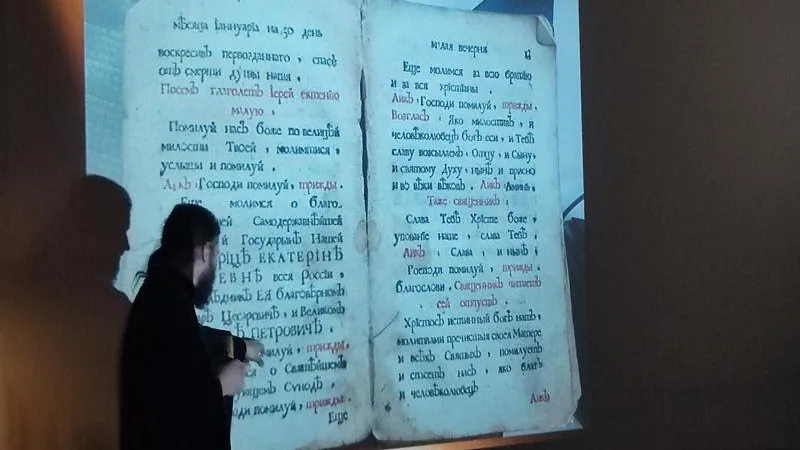 мѣсяца Іаннуаріа на 30 день
воскресивъ первозданнаго, спасе
отъ смерти душы нашя.
Посемъ глаголетъ Іерей ектению
малую.
Помилуй насъ боже по велицѣй
милости Твоей, молимтися,
услыши и помилуй.
Ликъ Господи помилуй, трижды.
Еще молимся о благо
ей Самодержавнѣйшей
й Государынѣ Нашей
РИЦѢ ЕКАТЕРІНѢ
ЕВНѢ всея Россіи,
лѣдникѣ ЕЯ благовѣрномъ
арѣ Цесаревичѣ, и Великомъ
ѢѢ ПЕТРОВИЧѢ.
милуй, трижды.
ся о Святѣйшемъ
ующемъ Сунодѣ.
оди помилуй, трижды.
Еще
малая вечерня
Еще молимся за всю братию
и за вся хрістіаны.
Ликъ Господи помилуй, трижды.
Возгласъ Яко милостивъ, и
человѣколюбецъ богъ еси, и Тебѣ
славу возсылаемъ, Отцу, и Сыну,
и святому Духу, нынѣ и присно
и во вѣки вѣковъ. Ликъ Аминь.
Таже священникъ.
Слава Тебѣ Хрісте боже,
упование наше, слава Тебѣ.
Ликъ Слава, и нынѣ,
Господи помилуй, трижды
благослови. Священникъ читаетъ
сей отпустъ.
Хрістосъ истинный богъ нашъ,
молитвами пречистыя своея Матере
и всѣхъ Святыхъ, помилуетъ
и спасетъ насъ, яко благъ
и человѣколюбецъ
Ликъ